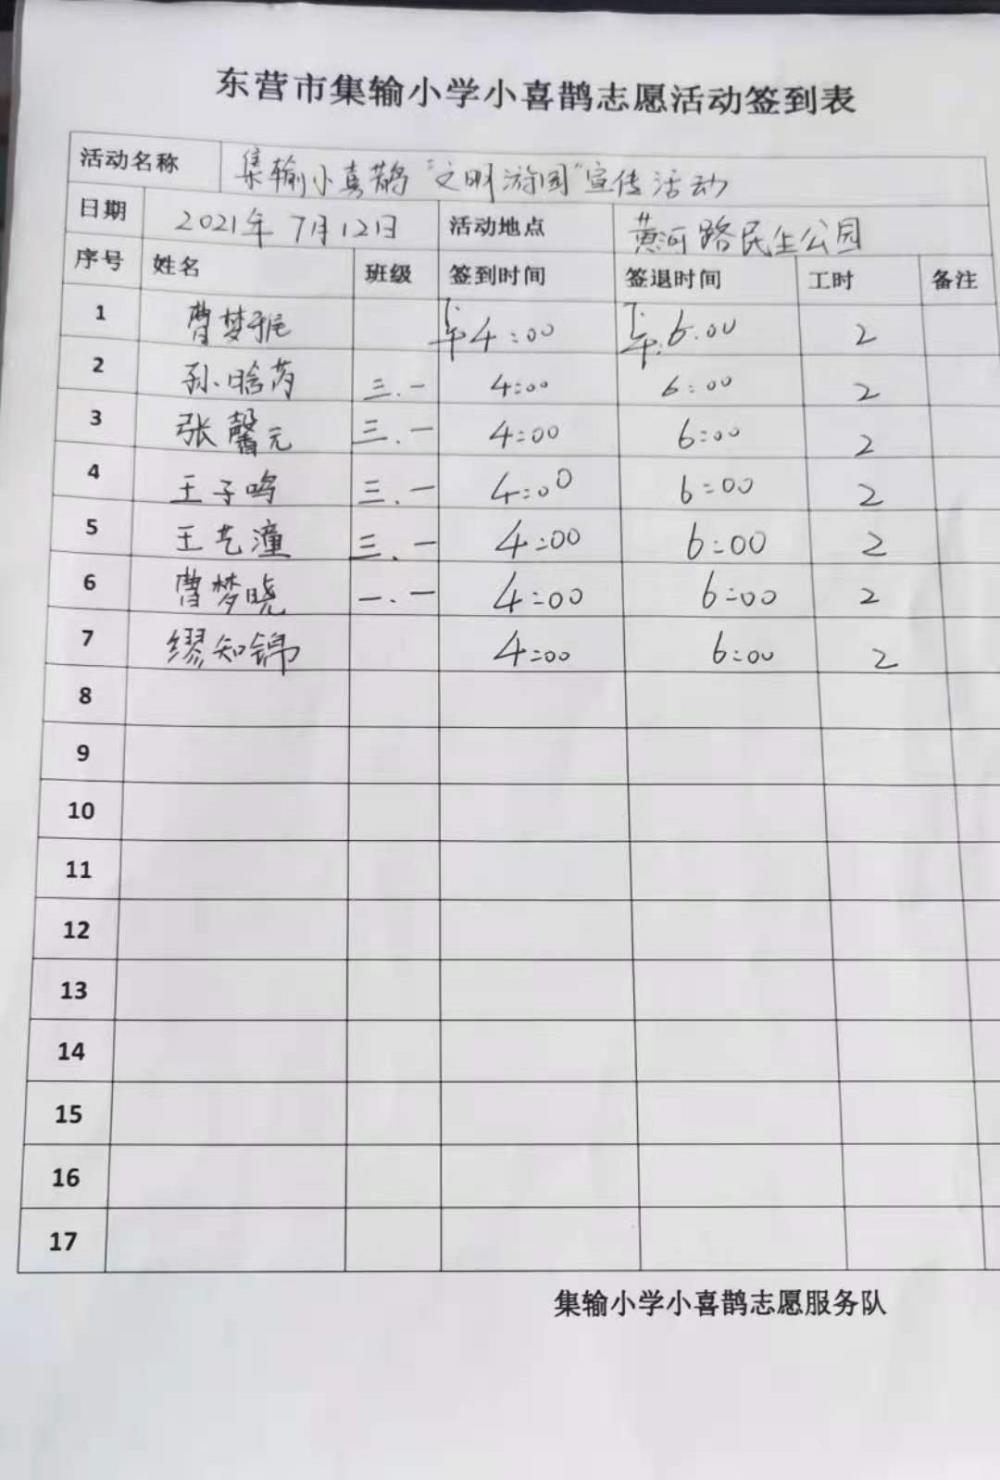 东营市集输小学小喜鹊志愿活动签到表
活动名称 集输小喜鹊“文明游园”宣传活动
日期 2021年7月12日 活动地点 黄河路民生公园
序号 姓名 班级 签到时间 签退时间 工时 备注
1 曹梦 下午4:00 下午6:00 2
2 孙晗芮 三.一 4:00 6:00 2
3 张馨元 三.一 4:00 6:00 2
4 王子鸣 三.一 4:00 6:00 2
5 王艺潼 三.一 4:00 6:00 2
6 曹梦晓 一.一 4:00 6:00 2
7 缪知锦 4:00 6:00 2
8
9
10
11
12
13
14
15
16
17
集输小学小喜鹊志愿服务队